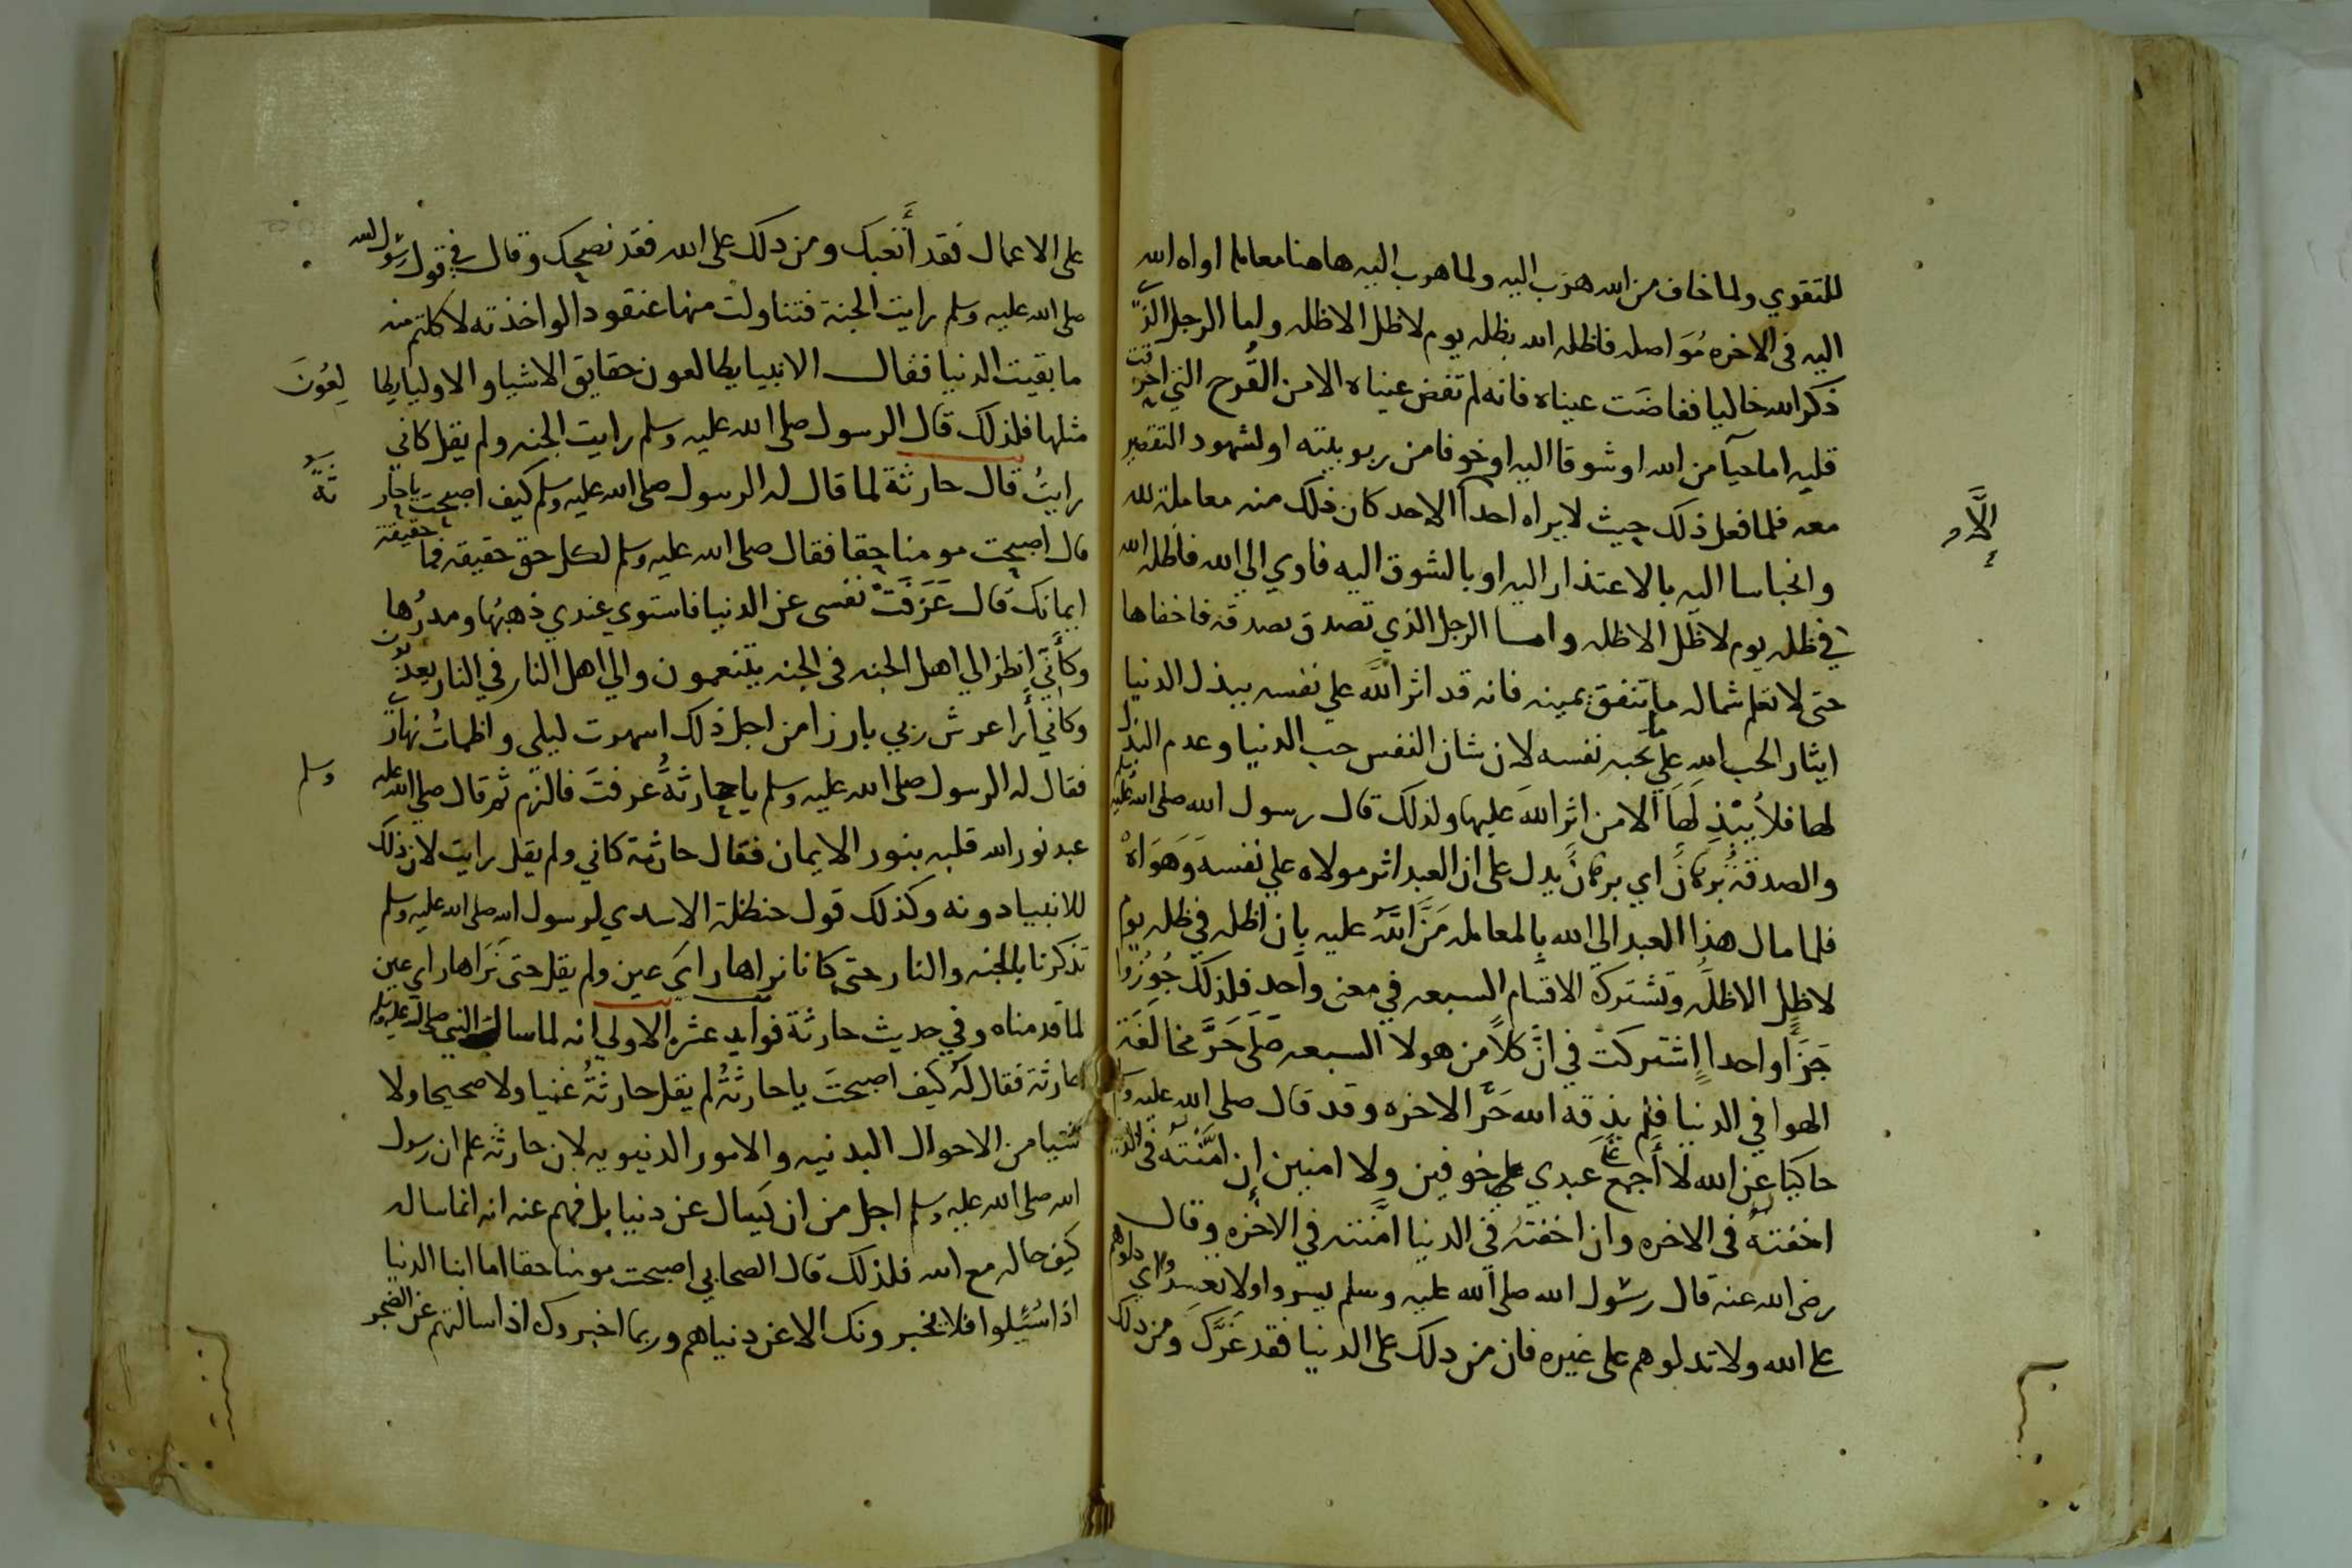 للتقوي ولما خاف من الله هرب اليه ولما هرب اليه هاهنا معاملا اواه الله
اليه فى الاخره مُوَاصله فاظله الله بظله يوم لاظل الاظله ولما الرجل الذي
ذكر الله خاليا ففاضت عيناه فانه لم تفض عيناه الا من القُرح التي احرقت
قلبه اما حيآ من الله او شوقا اليه او خوفا من ربوبيته او لشهود التقصير
معه فلما فعل ذلك حيث لايراه احدآ الاحد كان ذلك منه معاملة لله
وانحباسا اليه بالاعتذار اليه او بالشوق اليه فاوي الي الله فاظله الله
في ظله يوم لاظل الاظله وامــا الرجل الذي تصدق بصدقه فاخفاها
حتى لا تعلم شماله ما تنفق يمينه فانه قد اثر الله علي نفسه ببذل الدنيا
ايثار الحب الله علي ما تحبه نفسه لان شان النفس حب الدنيا وعدم البذل
لها فلا يُبْذِلَهَا الا من اثر الله عليها ولذلك قال رسول الله صلى الله عليه وسلم
والصدقة برهان اي برهان يدل على ان العبد اثر مولاه علي نفسه وَهَوَاهْ
فلما مال هذا العبد الي الله بالمعامله مَنَّ اللهُ عليه بان اظله في ظله يوم
لاظل الاظله وتشترك الاقسام السبعه في معنى واحد فلذلك جُوزُوا
جَزَآً واحدا اشتركت في انَّ كلاً من هولا السبعه صَلَى حَرَّ مخالفَة
الهوا في الدنيا فلم يذقه الله حَرَّ الاخره وقد قال صلى الله عليه وسلم
حاكيا عن الله لَا أَجمع علي عبدي خوفين ولا امنين إن امَّنتهُ في الدنيا
اخفتهُ فى الاخره وان اخفتهُ في الدنيا امَّنته في الاخره وقال
رضي الله عنه قال رسُول الله صلى الله عليه وسلم يسروا ولا تعسروا اي دلوهم
على الله ولا تدلوهم على غيره فان من دلك على الدنيا فقد غَرَّكَ ومن دلك
إلَّا
على الاعمال فقد أَتعبك ومن دلك على الله فقد نصحك وقال في قول رسُول الله
صلى الله عليه وسلم رايت الجنة فتناولت منها عنقودا لو اخذته لاكلتم منه
ما بقيت الدنيا فقال الانبيا يطالعون حقايق الاشيا والاوليا يطا لِعُونَ
مثلها فلذلك قال الرسول صلى الله عليه وسلم رايت الجنه ولم يقل كاني
رايتُ قال حارثة لما قال له الرسول صلى الله عليه وسلم كيف اصبحت ياحار ثةُ
قال اصبحت مومنا حقا فقال صلى الله عليه وسلم لكل حق حقيقه فما حقيقة
ايمانك قال عَزَفَتْ نفسى عن الدنيا فاستوي عندي ذهبُها ومدرُها
وكأني انظر الي اهل الجنه فى الجنه يتنعمون والي اهل النار في النار يعذبون
وكاني أرا عرش ربي بارزا من اجل ذلك اسهرت ليلي واظمات نهاري
فقال له الرسول صلى الله عليه وسلم يا حارثةُ عرفتَ فالزم ثم قال صلي الله عليه وسلم
عبد نور الله قلبه بنور الايمان فقال حارثة كاني ولم يقل رايت لان ذلك
للانبيا دونه وكذلك قول حنظلة الاسدي لرسول الله صلى الله عليه وسلم
تذكرنا بالجنه والنار حتى كانا نراها راىَ عين ولم يقل حتى نَرَاها راي عين
لما قدمناه وفي حديث حارثة فوايد عشره الاولي انه لما سال النبي صلى الله عليه وسلم
حارثة فقال لهُ كيف اصبحتَ يا حارثةُ لم يقل حارثةُ غنيا ولا صحيحا ولا
شيا من الاحوال البدنيه والامور الدنيويه لان حارثة علم ان رسول
الله صلى الله عليه وسلم اجل من ان يَسال عن دنيا بل فهم عنه انه انما ساله
كيف حاله مع الله فلذلك قال الصحابي اصبحت مومنا حقا اما ابنا الدنيا
اذا سُئِلوا فلا يخبرونك الا عن دنياهم وربما اخبروك اذا سالتهم عن الضجر